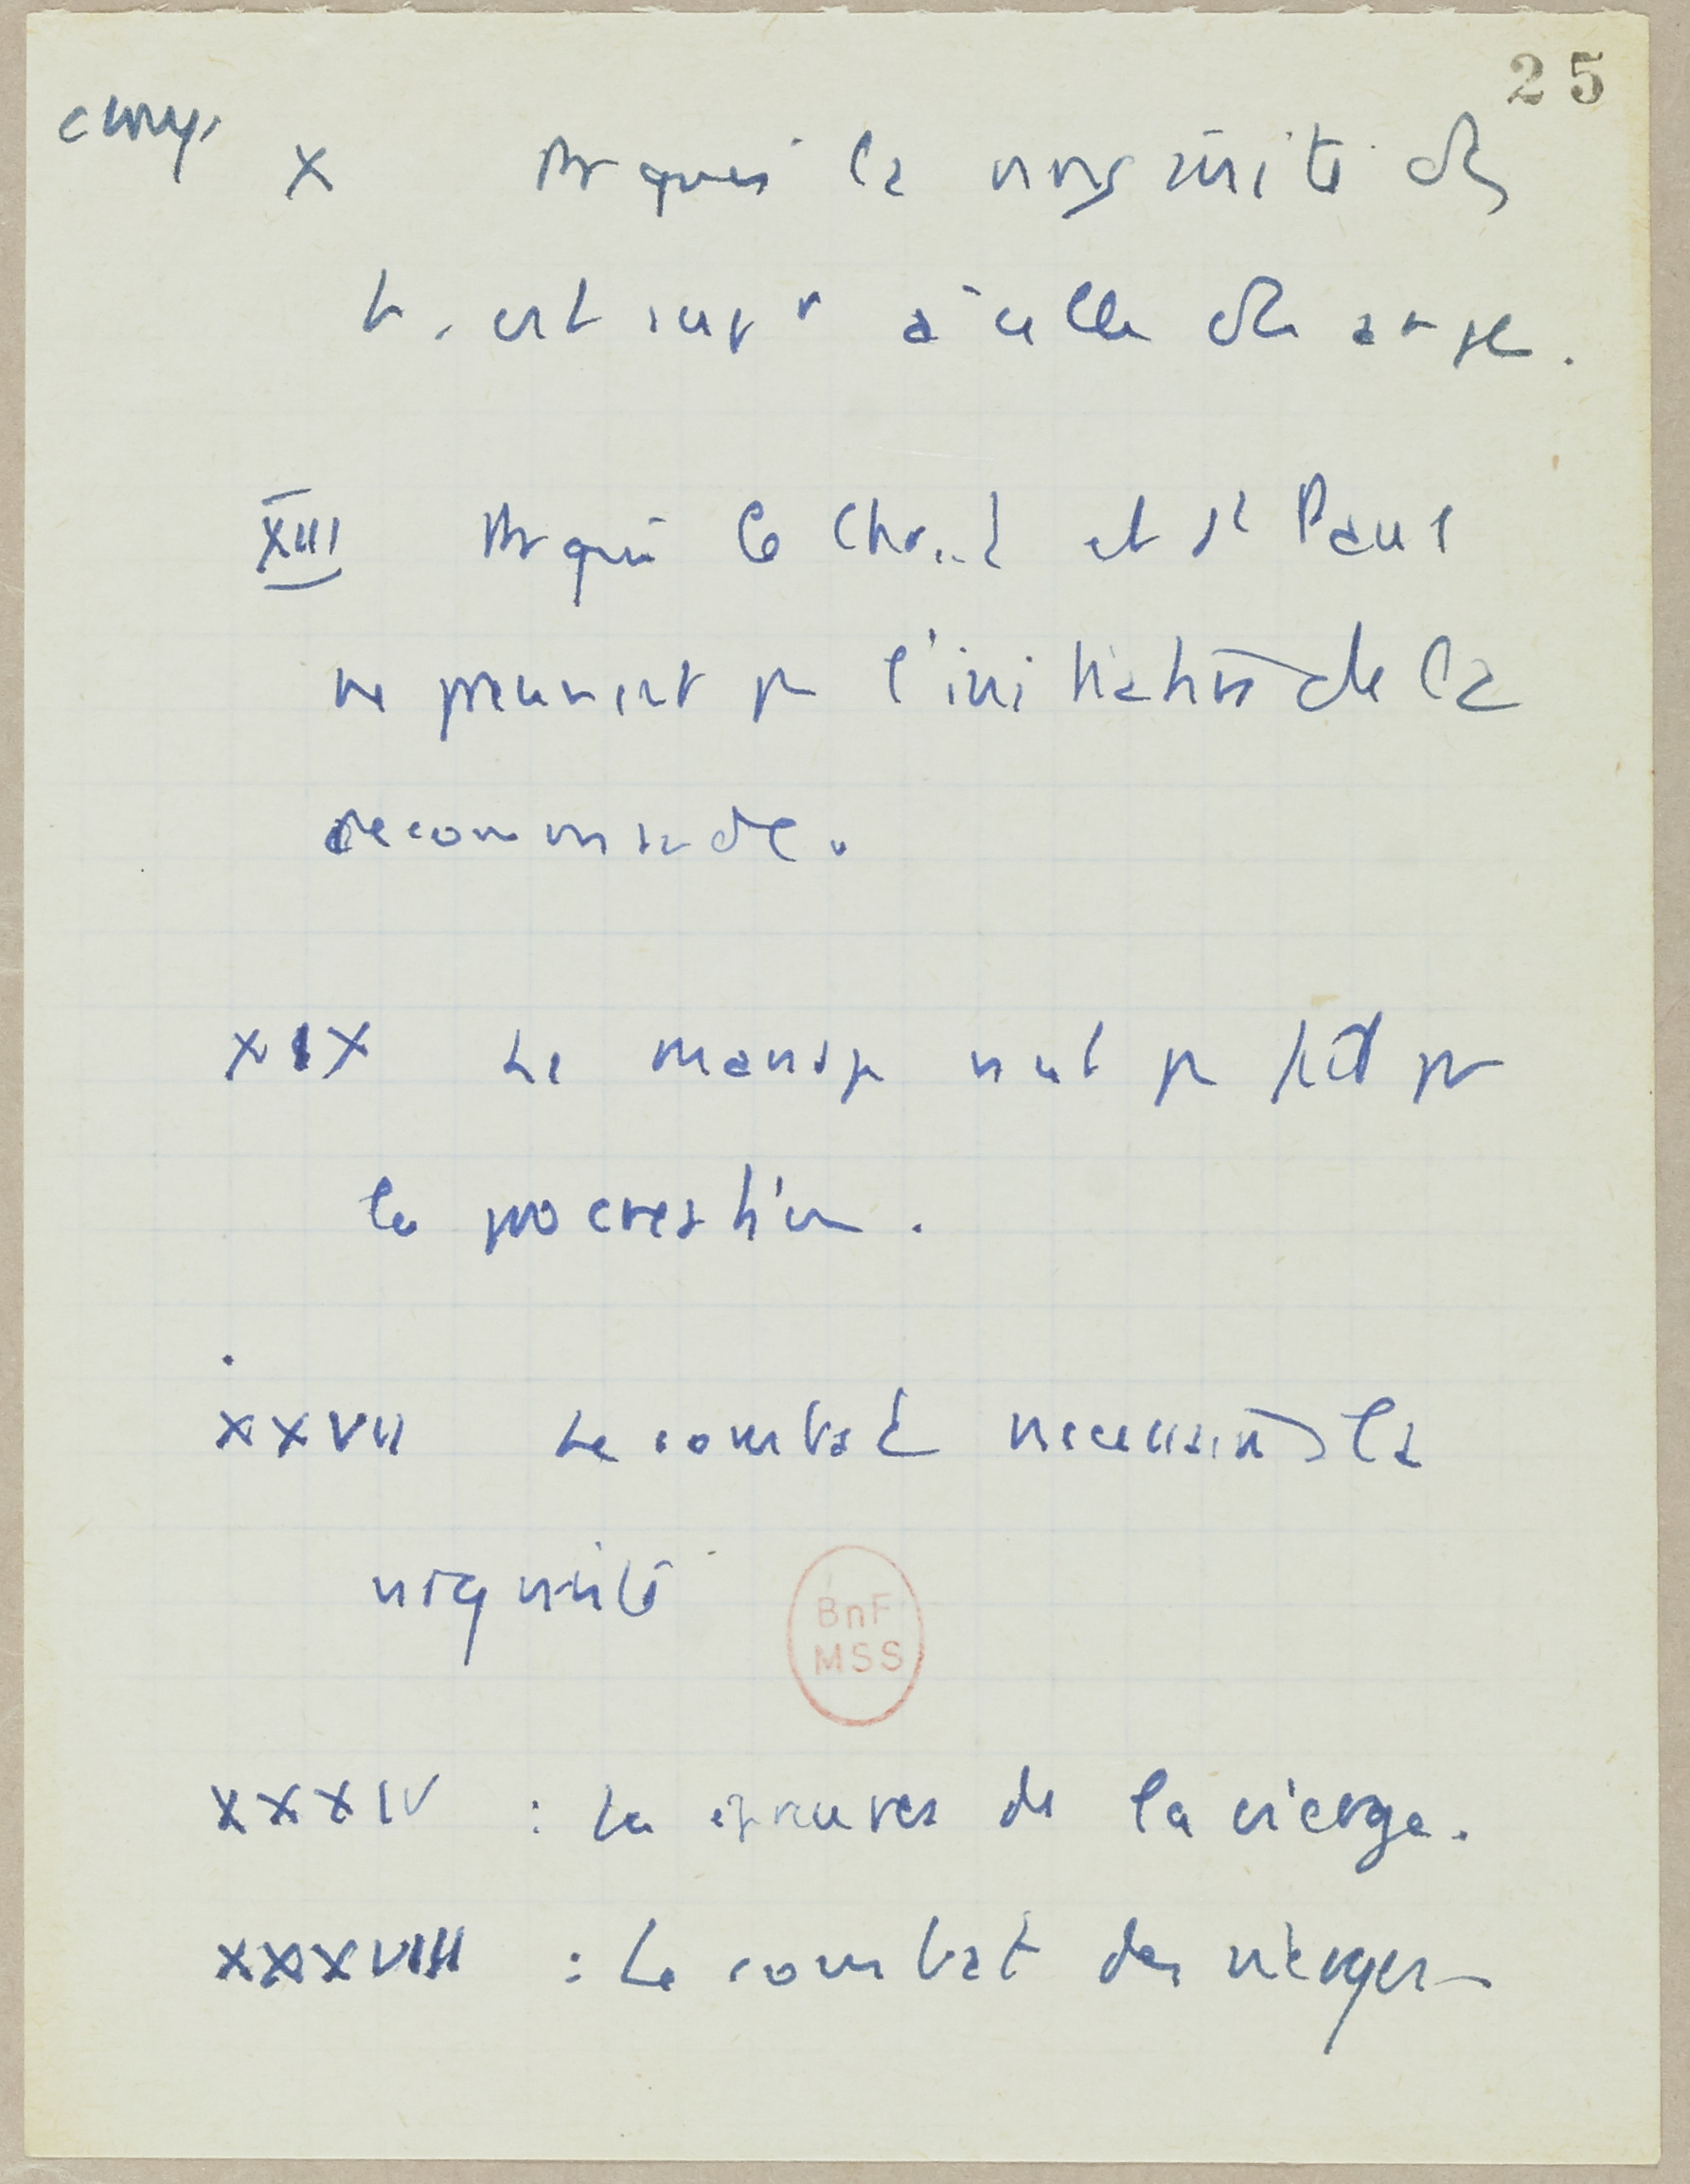 25
Chrys.
X Pourquoi la virginité des
h. est supr à celle des anges.
XIII Pourquoi le Christ et St Paul
ne peuvent pas l'initiation de la
recommande.
XIX Le mariage n'est pas fait pr
la procreation.
XXVII Le combat necessaire à la
virginité
BnF
MSS
XXXIV : Les épreuves de la vierge.
XXXVIII : Le combat des vierges